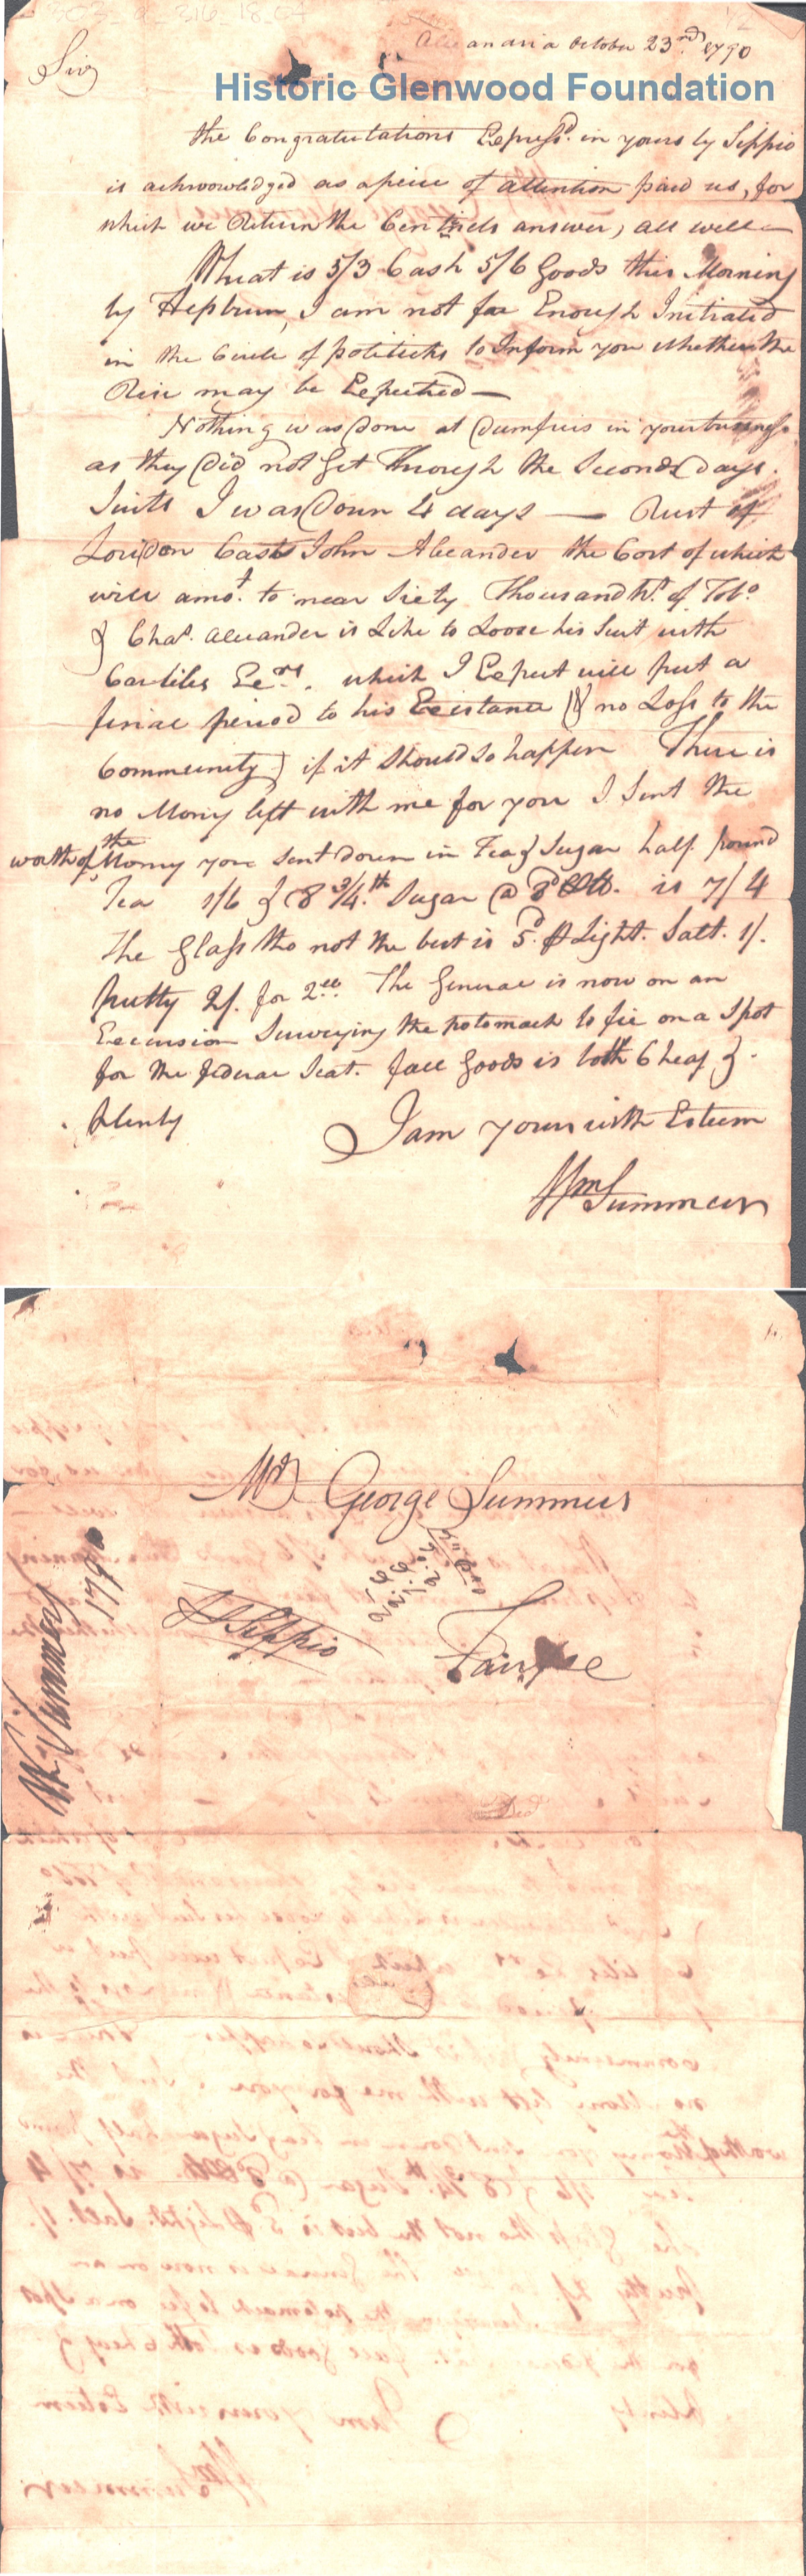 Alexandria October 23rd 1790
Sir
Historic Glenwood Foundation
the Congratulations Expressd. in yours by Sippio
is acknowledged as a peice of attention paid us, for
which we Return the Centinels answer, all well —
Wheat is 5/3 Cash 5/6 Goods this Morning
by Hepburn, I am not far Enough Initiated
in the Circle of politicks to Inform you whether the
Rise may be Expected —
Nothing was done at Dumfries in your business
as they did not get through the Seconds days.
Suits I was down 4 days — Rust of
Louden Casts John Alexander the Cost of which
will amot. to near Sixty Thousand wt. of Tobo
& Chas. Alexander is Like to Loose his Suit with
Carliles Exrs. which I Expect will put a
final period to his Existance & no Loss to the
Community if it should so happen There is
no Mony left with me for you I Sent the
worth of the Mony you sent down in Tea & Sugar half pound
Tea 1/6 & 8 3/4 th Sugar @ 8d is 7/4
The Glass tho not the best is 5d. Light. Salt. 1/.
putty 2/. for 2 The General is now on an
Excursion Surveying the potomack to fix on a Spot
for the federal Seat. fall Goods is both Cheap &.
plenty
I am yours with Esteem
Wm Summers
Mr George Summers
Sippio
Fairfax
W Summers
1790